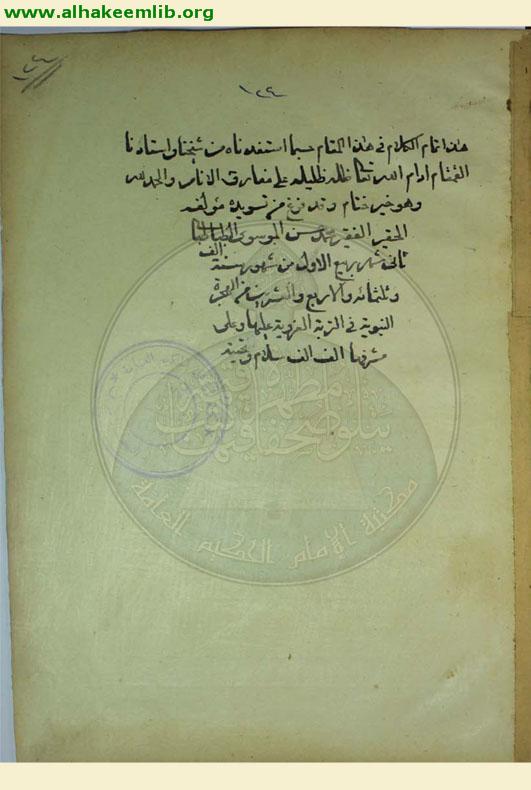 www.alhakeemlib.org
١٢٤
هذا تمام الكلام في هذا المقام حسبما استفدناه من شيخنا واستادنا
القمقام ادام الله تعالى ظله ظليله على مفارق الانام والحمد لله
وهو خير ختام وقد فرغ من تسويده مؤلفه
الحقير الفقير محمد حسن الموسوي الطباطبا
ثاني شهر ربيع الاول من شهور سنة الف
وثلثمائة والاربع والعشرين من الهجرة
النبوية في التربة الغروية عليها وعلى
مشرفها الف الف سلام وتحية
مكتبة الإمام الحكيم العامة